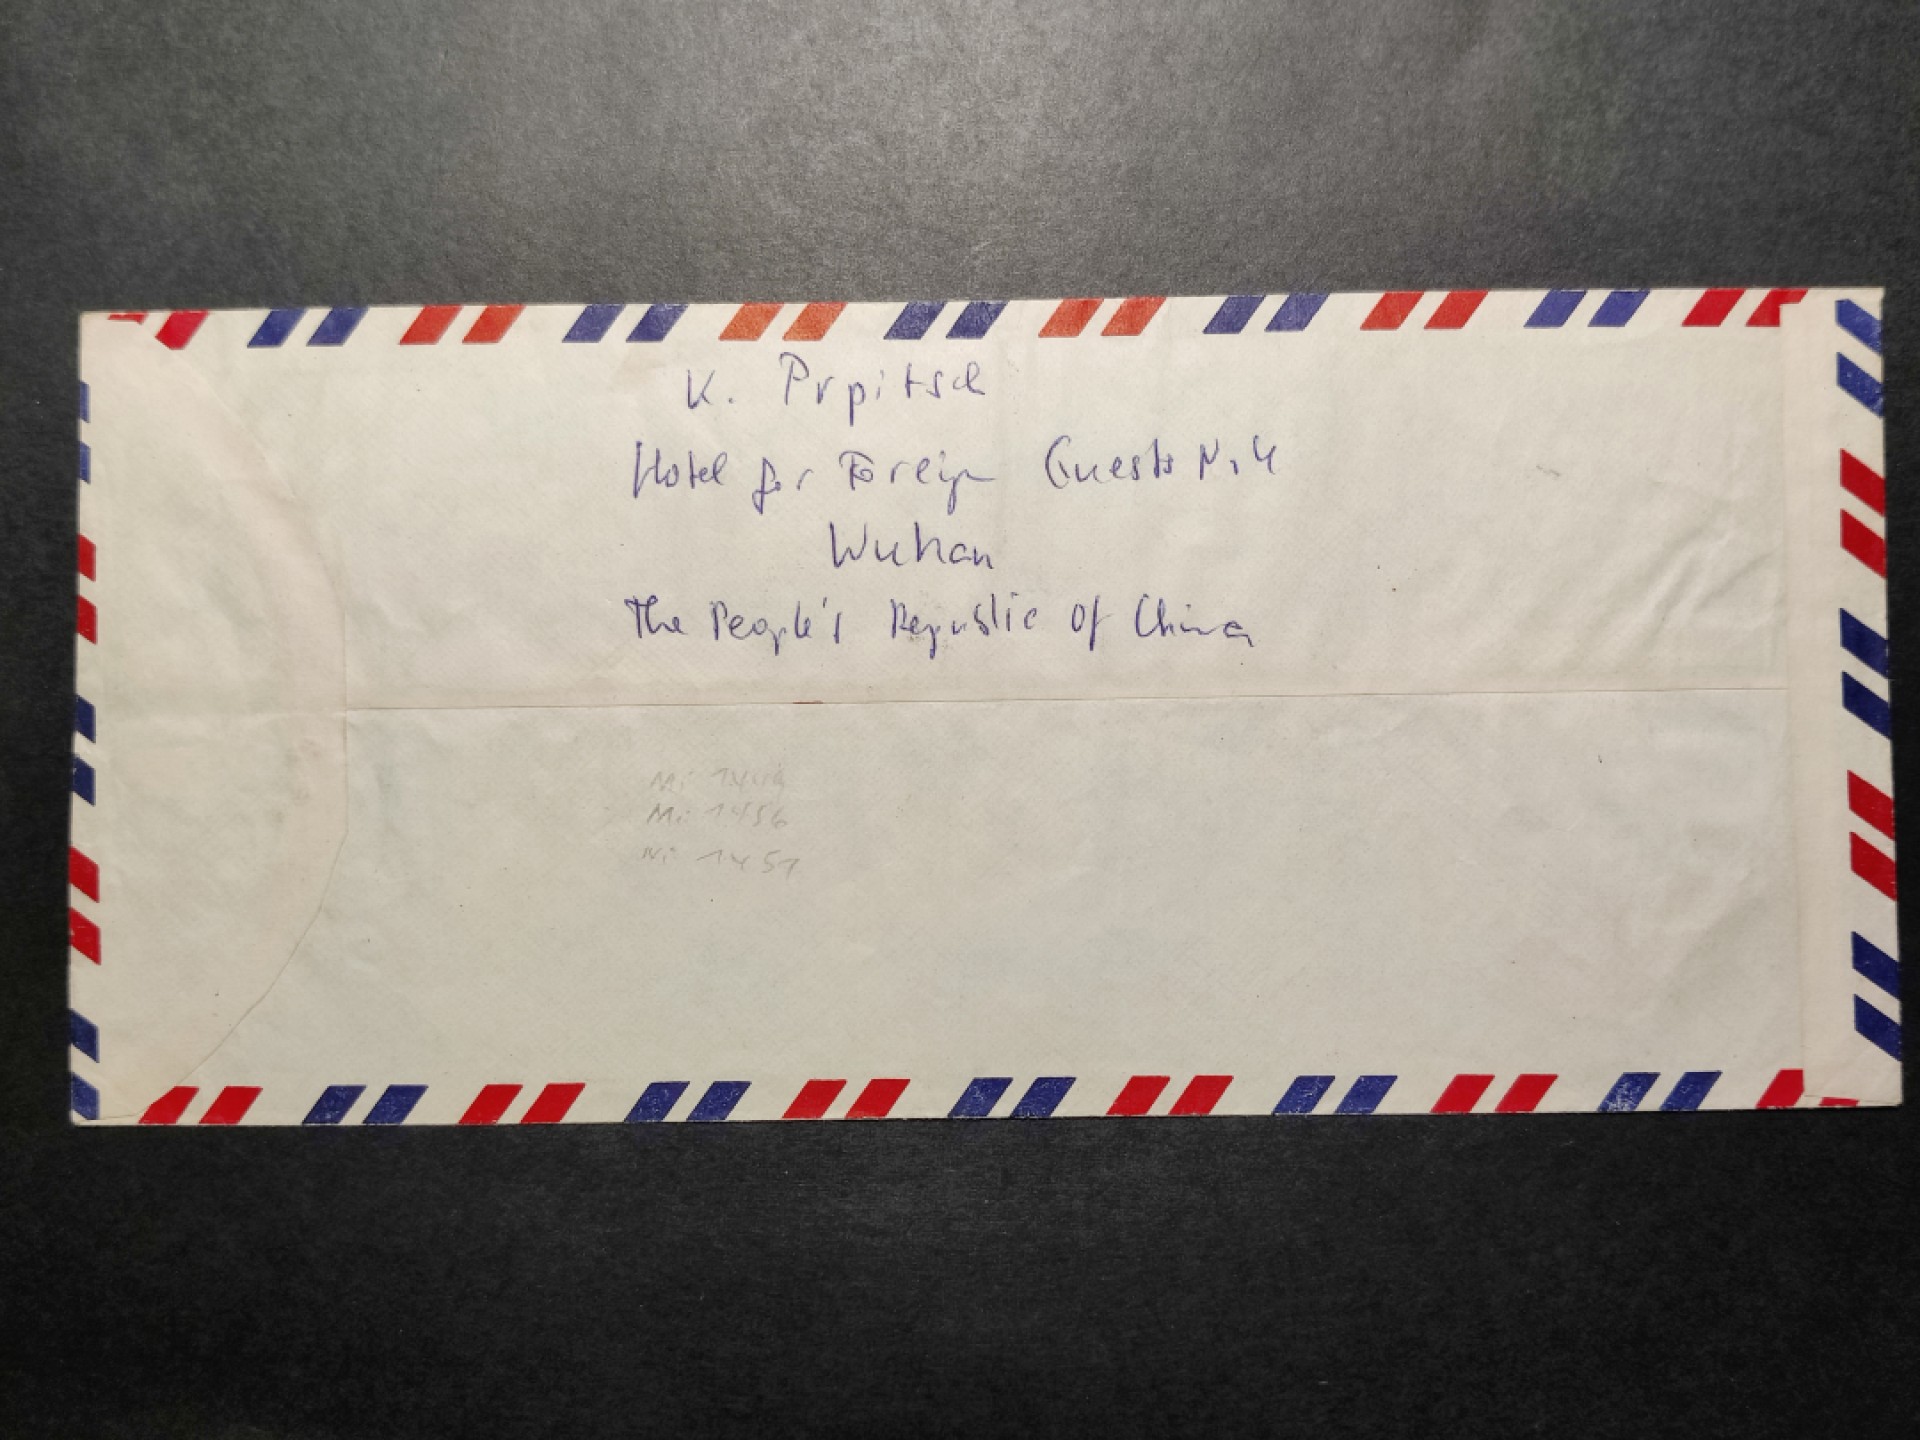 K. Prpitsch
Hotel for Foreign Guests No 4
Wuhan
The People's Republic of China
Mi
Mi 1456
Mi 1451